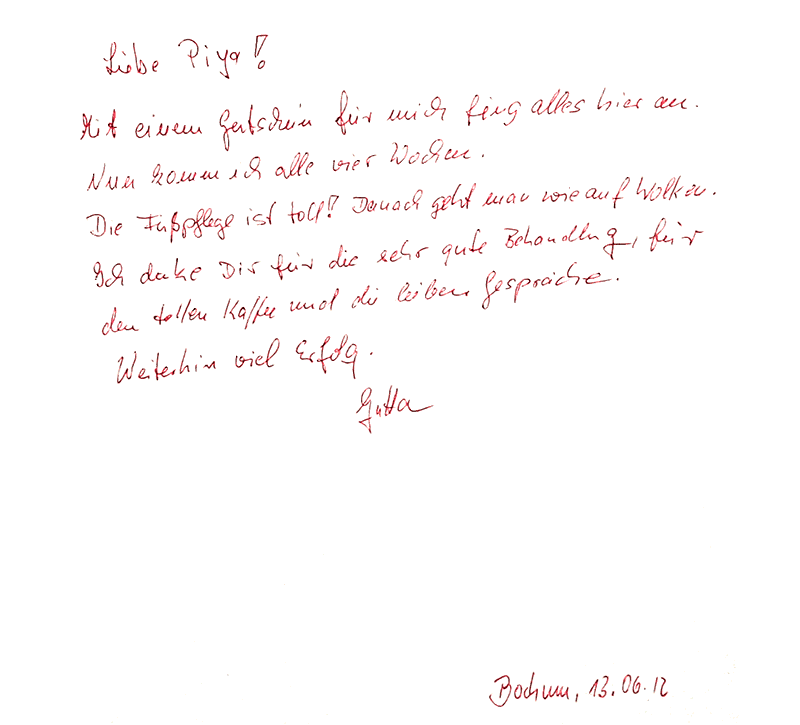 Liebe Piya!
Mit einem Gutschein für mich fing alles hier an.
Nun komm ich alle vier Wochen.
Die Fußpflege ist toll! Danach geht man wie auf Wolken.
Ich danke Dir für die sehr gute Behandlung, für
den tollen Kaffee und die lieben Gespräche.
Weiterhin viel Erfolg.
Jutta
Bochum, 13.06.12